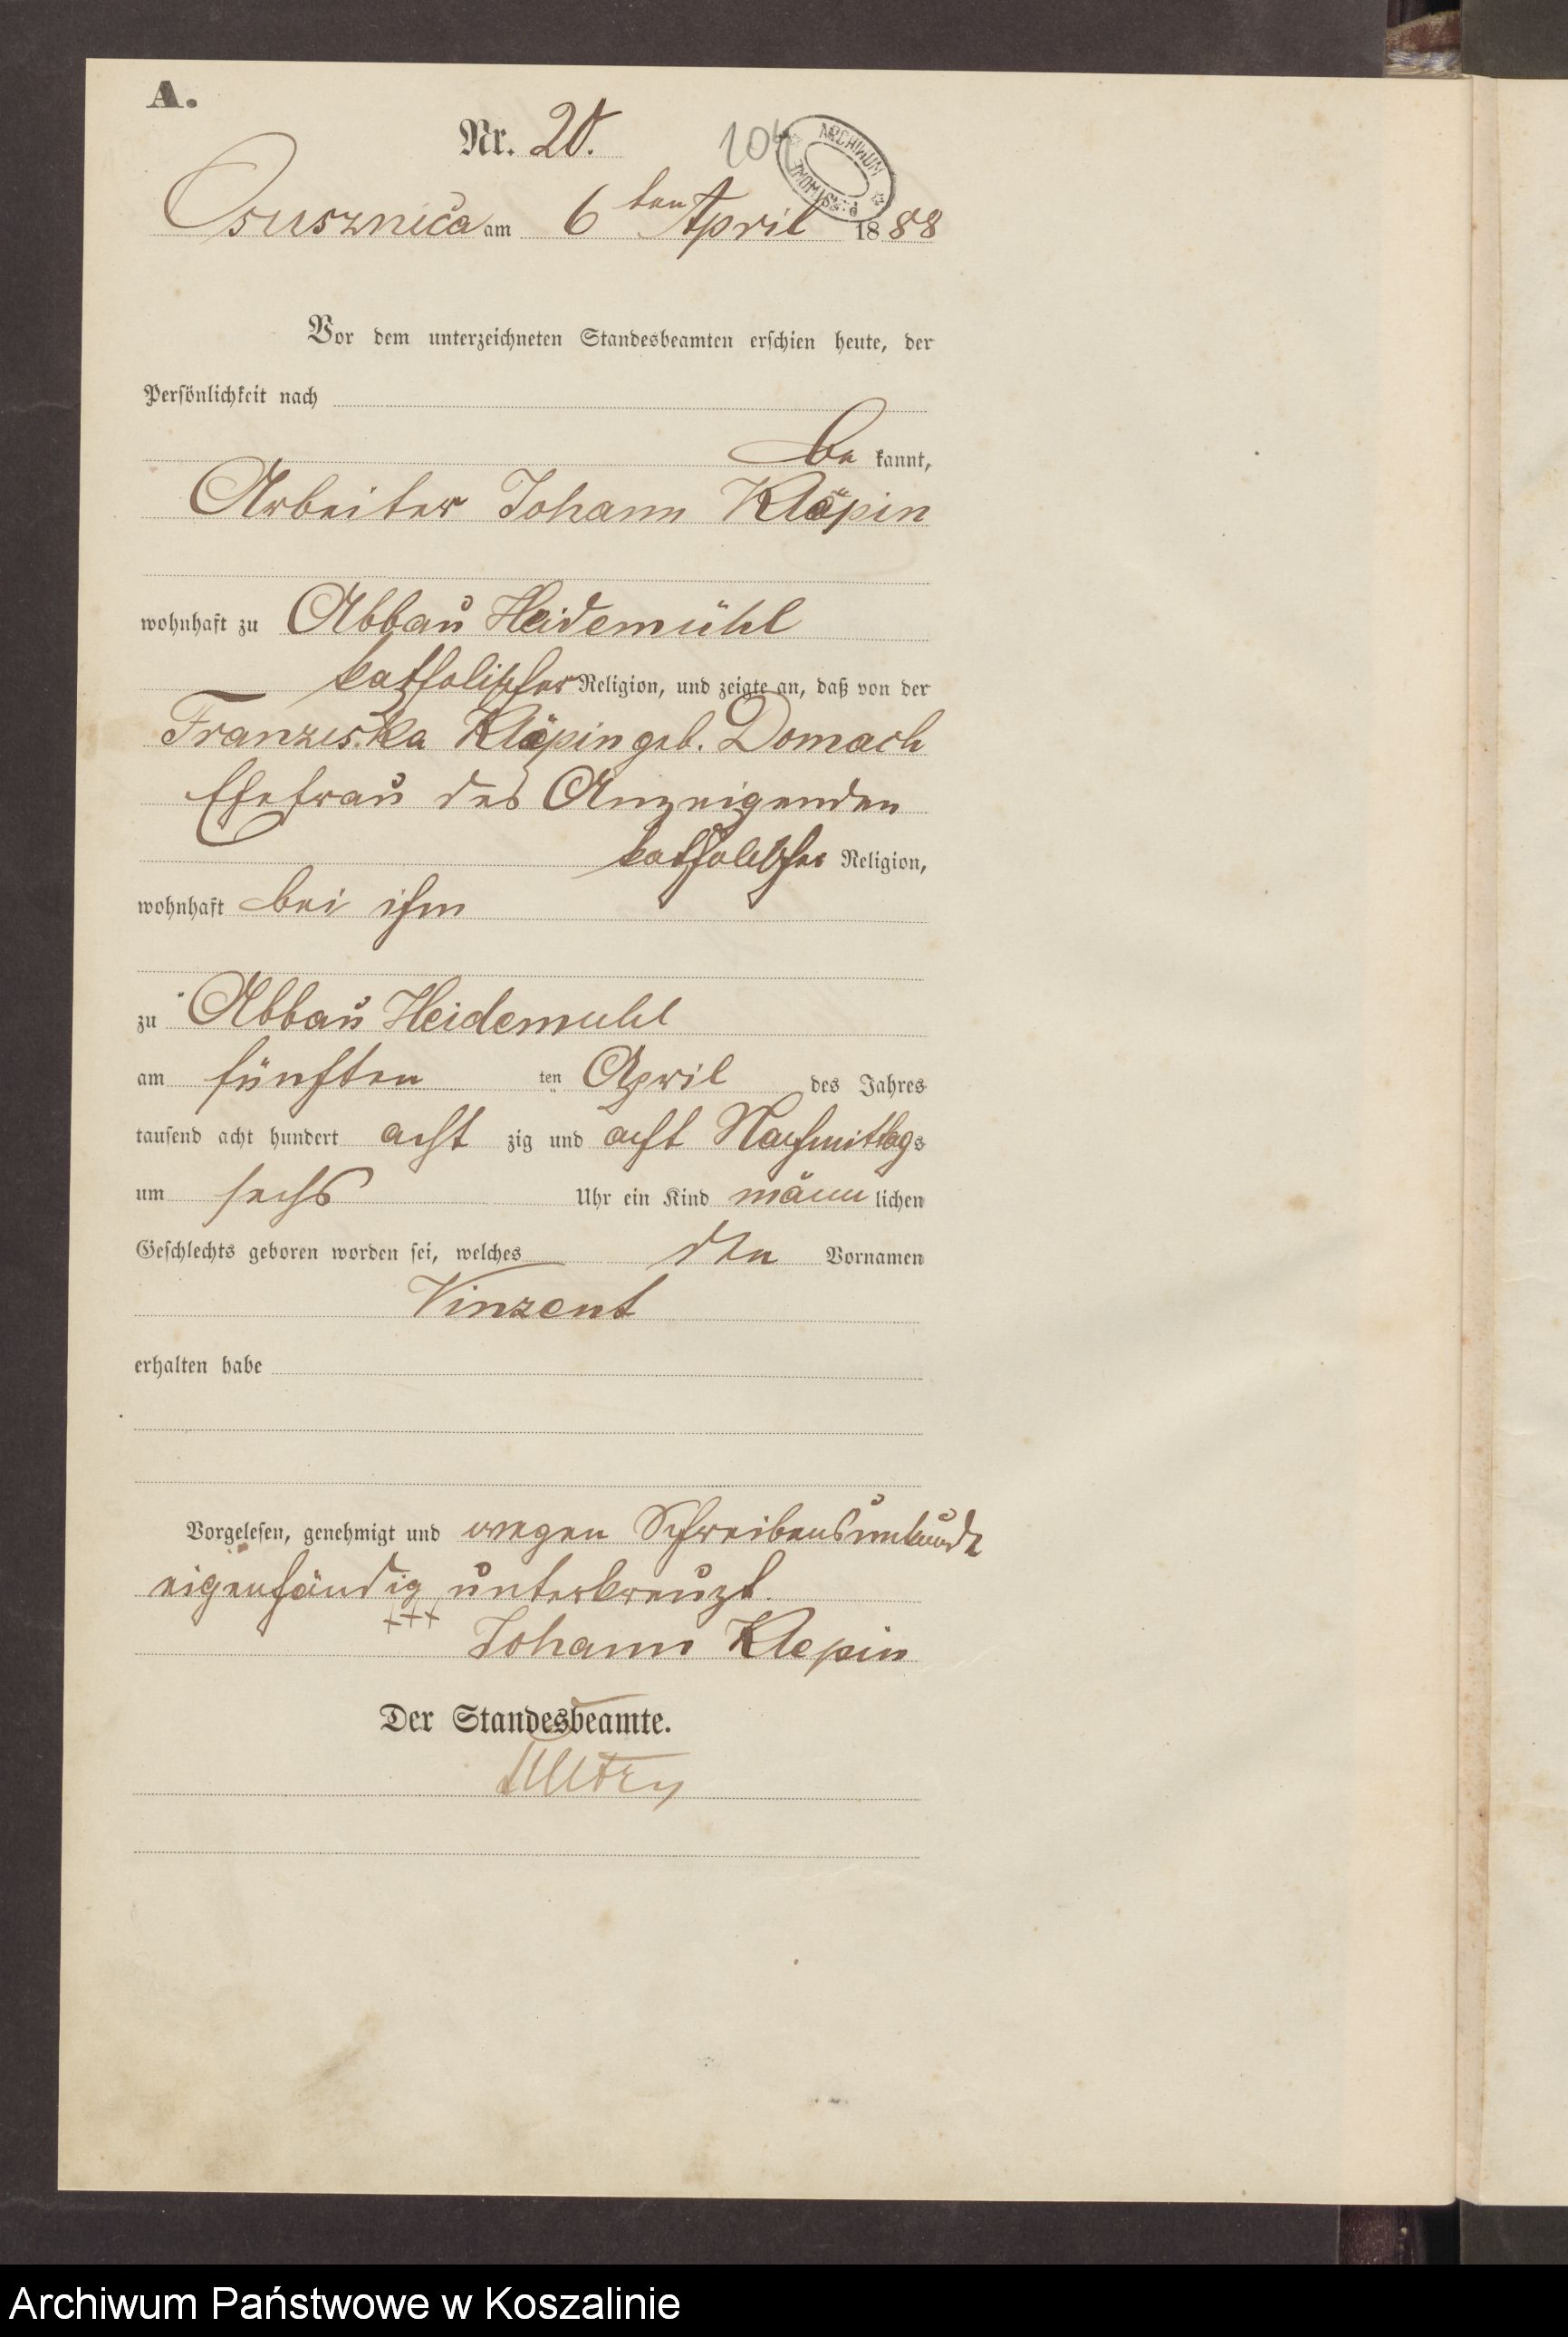 A.
Nr. 20.
104
ARCHIWUM
Osusznica am 6 ten April 1888
Vor dem unterzeichneten Standesbeamten erschien heute, der
Persönlichkeit nach
be kannt,
Arbeiter Johann Kläpin
wohnhaft zu Abbau Heidemühl
katholischer Religion, und zeigte an, daß von der
Franziska Kläpin geb. Domach
Ehefrau des Anzeigenden
katholischer Religion,
wohnhaft bei ihm
zu Abbau Heidemuhl
am fünften ten April des Jahres
tausend acht hundert acht zig und acht Nachmittags
um sechs Uhr ein Kind männ lichen
Geschlechts geboren worden sei, welches den Vornamen
Vinzent
erhalten habe
Vorgelesen, genehmigt und wegen Schreibensunkunde
eigenhändig unterkreuzt.
+++ Johann Klepin
Der Standesbeamte.
Archiwum Państwowe w Koszalinie